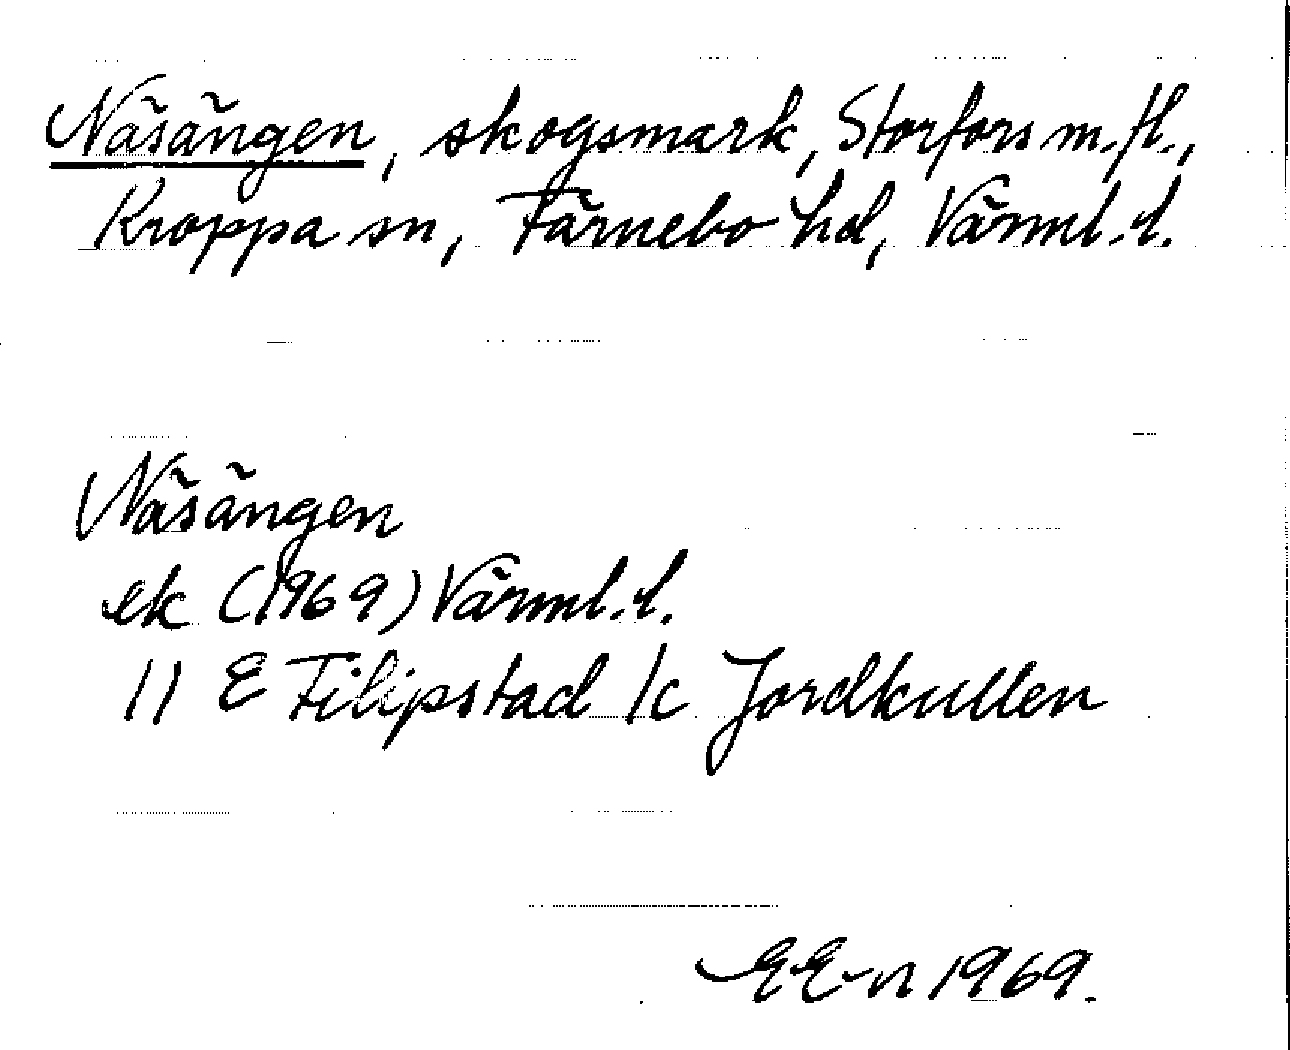 Näsängen, skogsmark, Storfors m.fl.,
Kroppa sn, Färnebo hd, Värml.l.
Näsängen
ek (1969) Värml.l.
11 E Filipstad 1c Jordkullen
EE-n 1969.